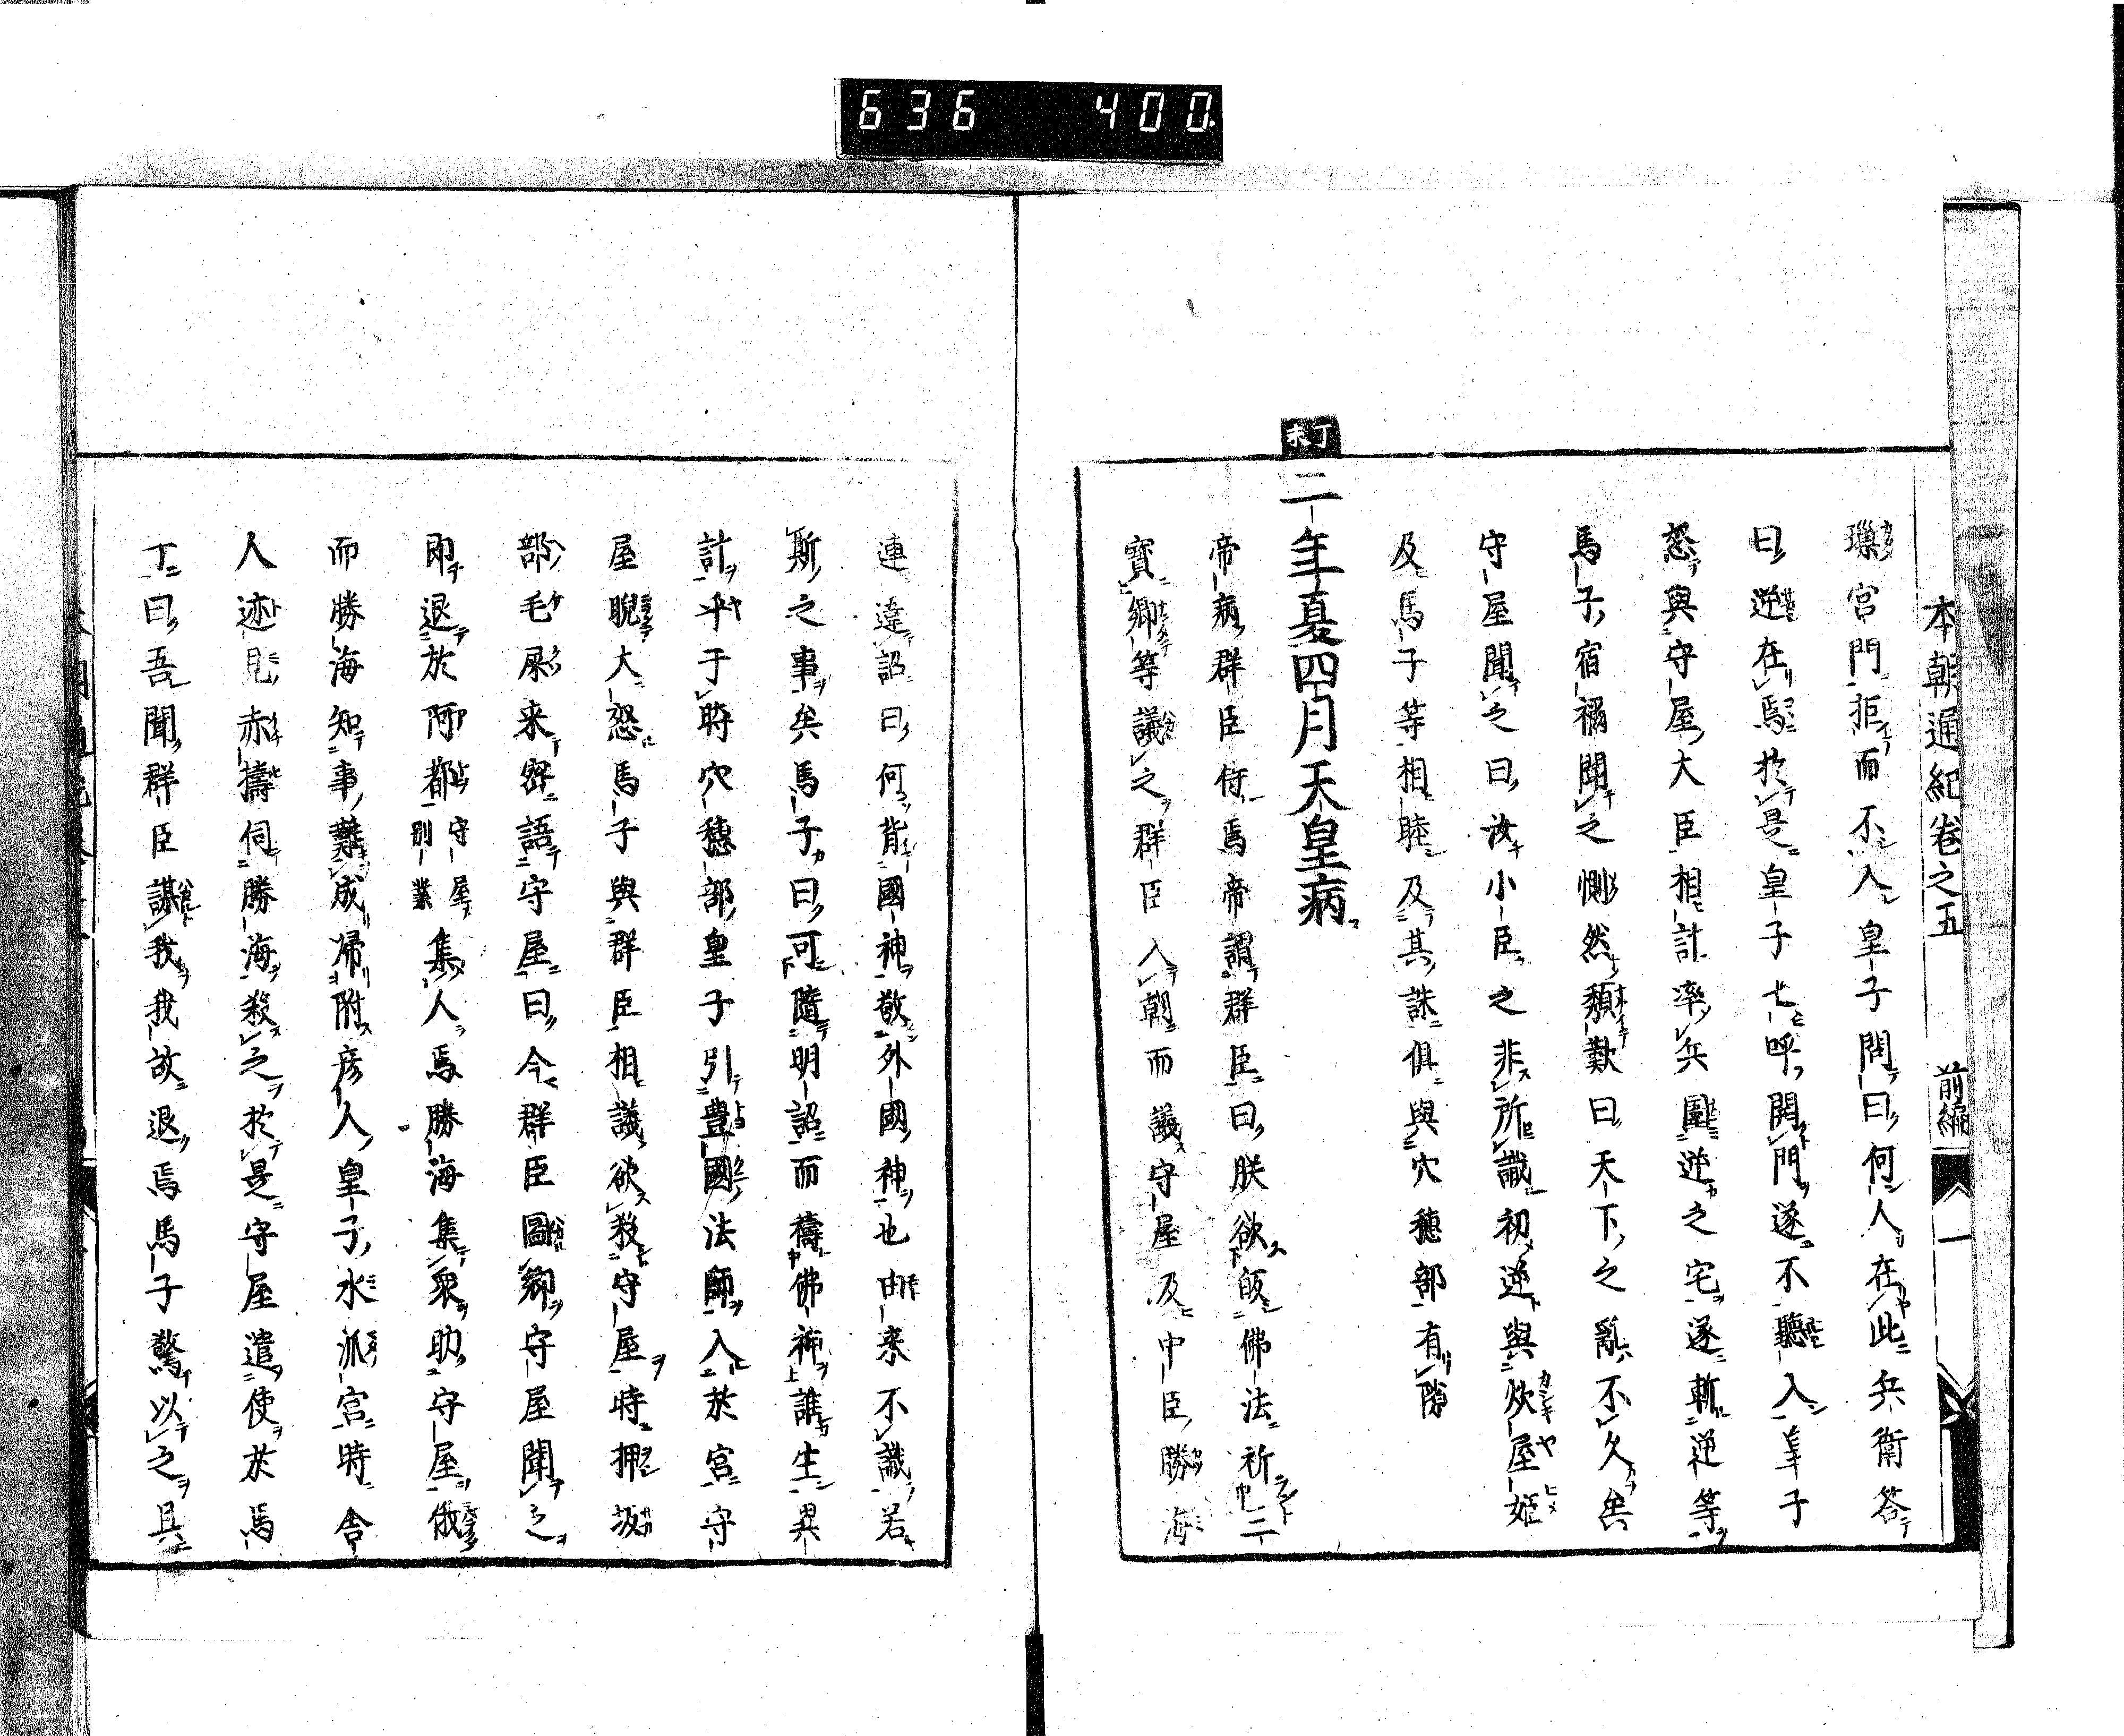 636 400
本朝通紀卷之五 前編 一
璅宮門拒而不入皇子問曰何人在此兵衛答
曰逆在焉於是皇子七呼開門遂不聽入皇子
怒與守屋大臣相計率兵圍逆之宅遂斬逆等
馬子宿禰聞之惻然頽歎曰天下之亂不久矣
守屋聞之曰汝小臣之非所識初逆與炊屋姬
及馬子等相睦及其誅俱與穴穗部有隙
丁未
二年夏四月天皇病
帝病群臣侍焉帝謂群臣曰朕欲皈佛法祈三
寳卿等議之群臣入朝而議守屋及中臣勝海
連違詔曰何背國神敬外國神也由來不識若
斯之事矣馬子曰可隨明詔而禱佛神誰生異
計乎于時穴穗部皇子引豊國法師入於宮守
屋睨大怒馬子與群臣相議欲殺守屋時押坂
部毛屎来密語守屋曰今群臣圖卿守屋聞之
即退於阿都守屋別業集人焉勝海集衆助守屋俄
而勝海知事難成帰附彦人皇子水派宮時舎
人迹見赤檮伺勝海殺之於是守屋遣使於馬
丁曰吾聞群臣謀我我故退焉馬子驚以之具